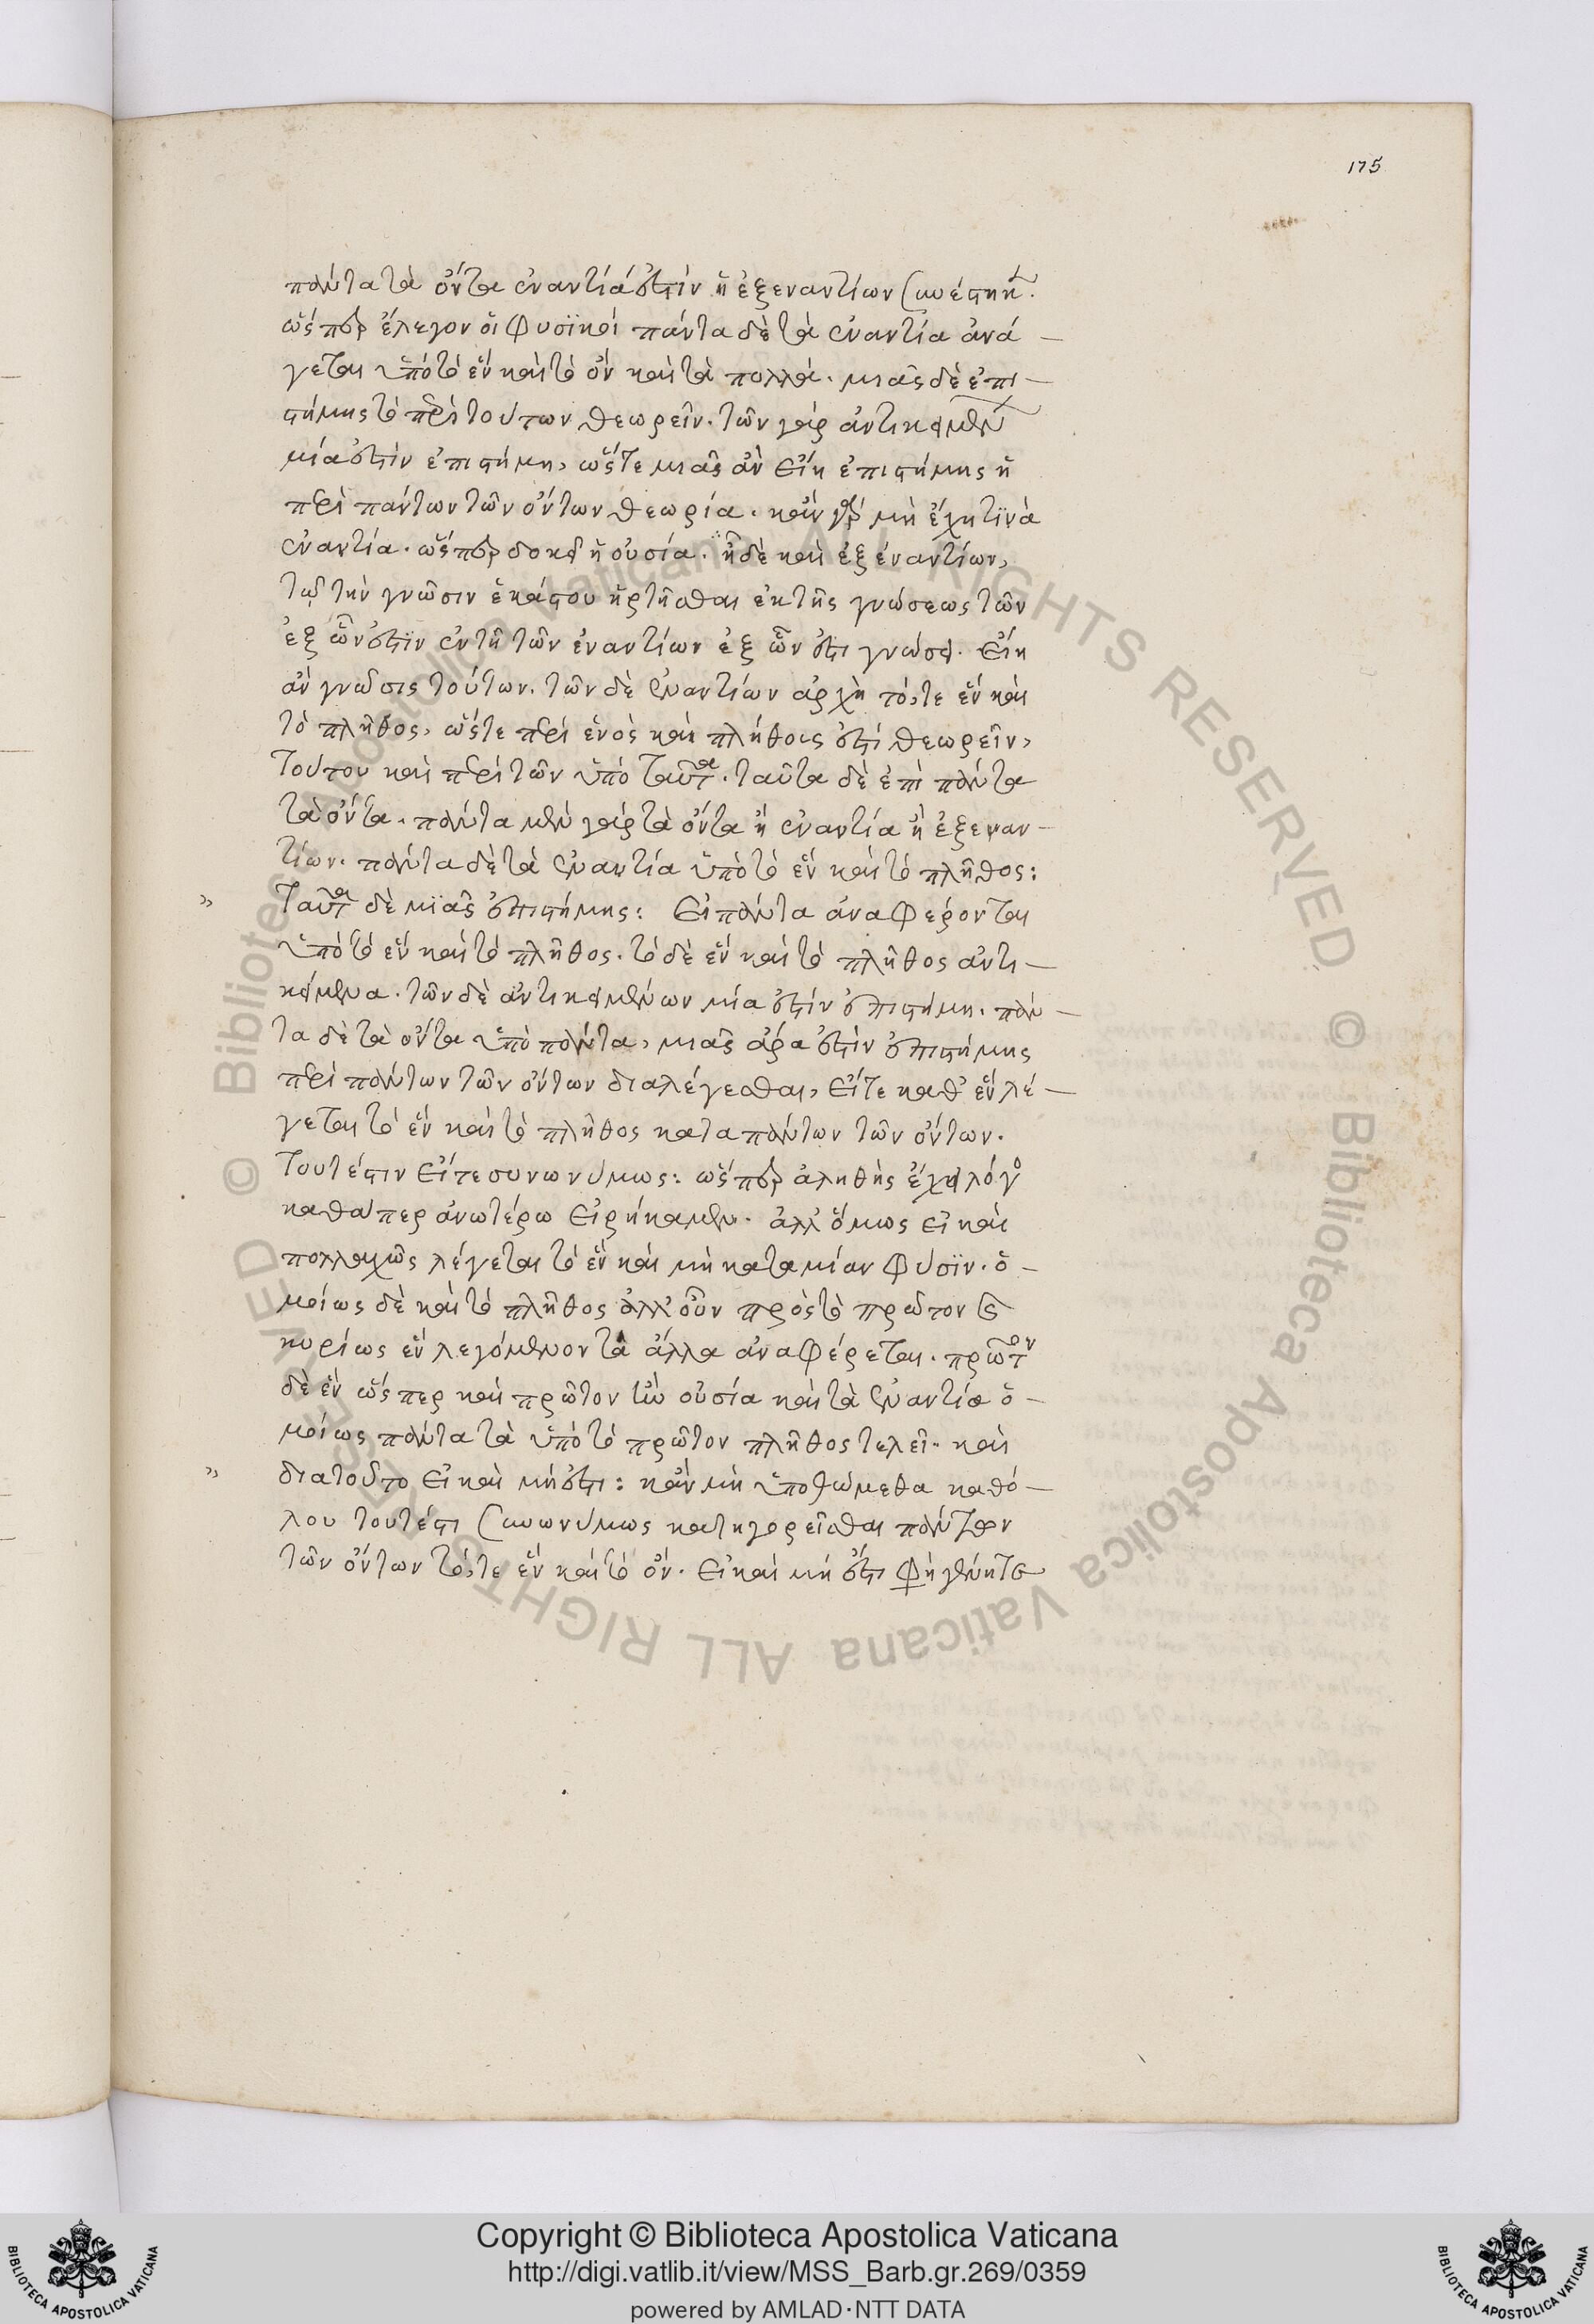 175
πάντα τὰ ὄντα ἐναντία ἐστὶν ἢ ἐξ ἐναντίων συνέστηκ.
ὥσπερ ἔλεγον οἱ φυσϊκοί πάντα δὲ τὰ ἐναντία ἀνά –
γεται ὑπὸ τὸ ἓν καὶ τὸ ὂν καὶ τὰ πολλά. μιᾶς δὲ ἐπι –
στήμης τὸ περὶ τούτων θεωρεῖν. τῶν γὰρ ἀντικειμένων
μία ἐστὶν ἐπιστήμη, ὥστε μιᾶς ἂν εἴη ἐπιστήμης ἡ
περὶ πάντων τῶν ὄντων θεωρία. κἂν γὰρ μὴ ἔχη τϊνὰ
ἐναντία. ὥσπερ δοκεῖ ἡ οὐσία. ἢ δὲ καὶ ἐξ ἐναντίων,
τῶ τὴν γνῶσιν ἑκάστου ἠρτῆσθαι ἐκ τῆς γνώσεως τῶν
ἐξ ὧν ἐστϊν ἐν τῆ τῶν ἐναντίων ἐξ ὧν ἐστι γνώσει. εἴη
ἂν γνῶσις τούτων. τῶν δὲ ἐναντίων ἀρχὴ τό, τε ἓν καὶ
τὸ πλῆθος, ὥστε περὶ ἑνὸς καὶ πλήθους ἐστὶ θεωρεῖν,
τούτου καὶ περὶ τῶν ὑπὸ ταῦτα. ταῦτα δὲ ἐπὶ πάντα
τὰ ὄντα. πάντα μὲν γὰρ τὰ ὄντα ἢ ἐναντία ἢ ἐξ εναν –
τίων. πάντα δὲ τὰ ἐναντία ὑπὸ τὸ ἓν καὶ τὸ πλῆθος:
» Ταῦτα δὲ μϊᾶς ἐπιστήμης: Εἰ πάντα ἀναφέρονται
ὑπὸ τὸ ἓν καὶ τὸ πλῆθος. τὸ δὲ ἓν καὶ τὸ πλῆθος ἀντι –
κείμενα. τῶν δὲ ἀντικειμένων μία ἐστὶν ἐπιστήμη. πάν –
τα δὲ τὰ ὄντα ὑπὸ πάντα, μιᾶς ἄρα ἐστὶν ἐπιστήμης
περὶ πάντων τῶν ὄντων διαλέγεσθαι, εἴτε καθ' ἓν λέ –
γεται τὸ ἓν καὶ τὸ πλῆθος κατα πάντων τῶν ὄντων.
τουτέστιν εἴτε συνωνύμως: ὥσπερ ἀληθὴς ἔχει λόγο
καθάπερ ἀνωτέρω εἰρήκαμεν. ἀλλ' ὅμως εἰ καὶ
πολλαχῶς λέγεται τὸ ἓν καὶ μὴ κατα μίαν φύσϊν. ὁ –
μοίως δὲ καὶ τὸ πλῆθος ἀλλ' οὖν πρὸς τὸ πρῶτον καὶ
κυρίως ἓν λεγόμενον τὰ ἄλλα ἀναφέρεται. πρῶτον
δὲ ἓν ὥσπερ καὶ πρῶτον ἦν οὐσία καὶ τὰ ἐναντία ὁ –
μοίως πάντα τὰ ὑπὸ τὸ πρῶτον πλῆθος τελεῖ. καὶ
» διατοῦτο εἰ καὶ μὴ ἔστι: κἂν μὴ ὑποθώμεθα καθό –
λου τουτέστι συνωνύμως κατηγορεῖσθαι πάντων
τῶν ὄντων τό, τε ἓν καὶ τὸ ὄν. εἰ καὶ μὴ ἔστι φὴ
Copyright © Biblioteca Apostolica Vaticana
http://digi.vatlib.it/view/MSS_Barb.gr.269/0359
powered by AMLAD·NTT DATA